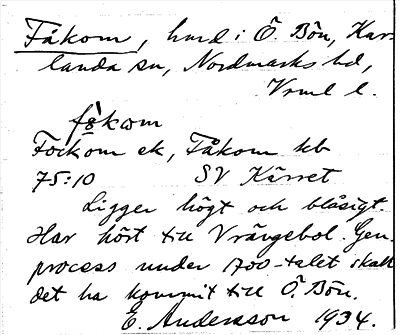 Fåkom, hmd i Ö. Bön, Kar-
landa sn, Nordmarks hd,
Vrml l.
fåkom
Fockom ek, Fåkom kb
75:10 SV Kärret
Ligger högt och blåsigt.
Har hört till Vrångebol. Gen
process under 1700-talet skall
det ha kommit till Ö. Bön.
E. Andersson 1934.